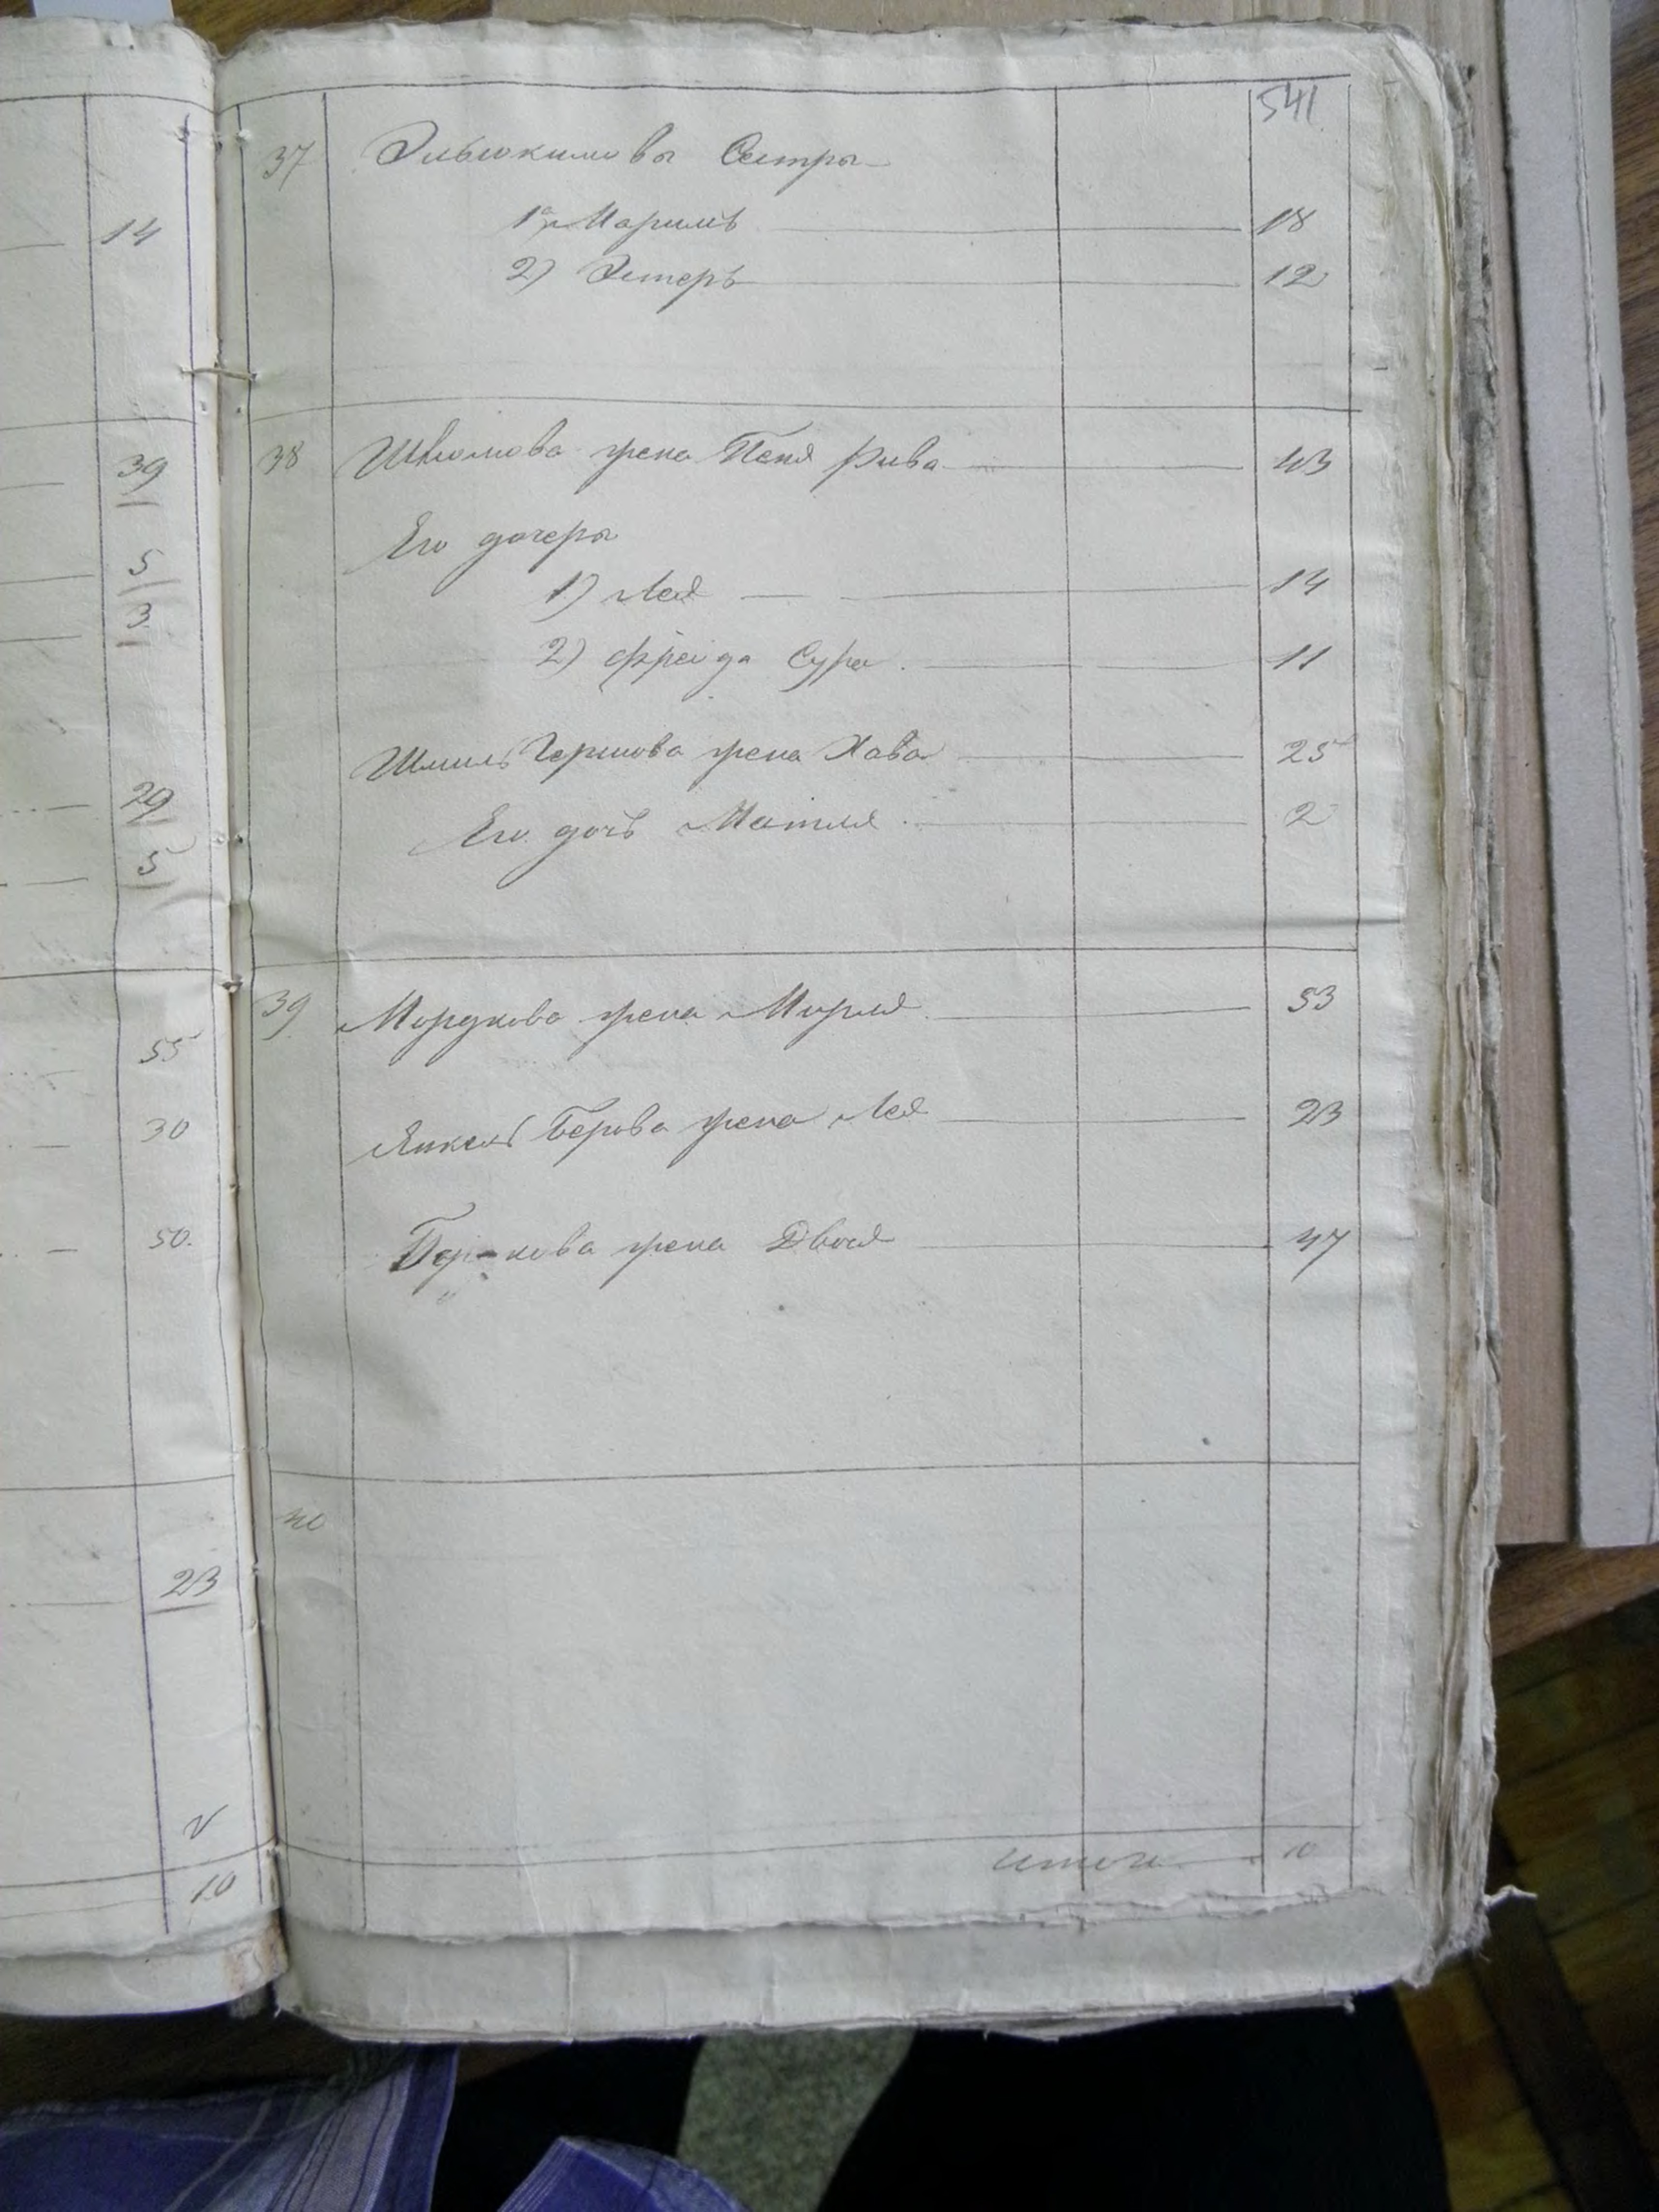 14
39
5
3
29
5
55
30
50.
23
10
541
37 Эльокимовы Сестры
1е Мариль 18
2) Эстеръ 12
38 Шлиомова жена Песя Рива 43
Его дочеры
1) Лея 14
2) Фрейда Сура 11
Шмиль Гершова жена Хава 25
Его дочь Матля 2
39 Мордкова жена Мирля 53
Янкель Берова жена Лея 23
жена Двося 47
40
итого 10